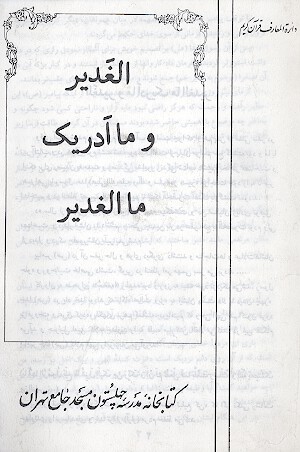 دائرة المعارف قرآن کریم
الغَدیر
و ما اَدریک
ما الغدیر
کتابخانهٔ مدرسهٔ چهلستون مسجد جامع تهران